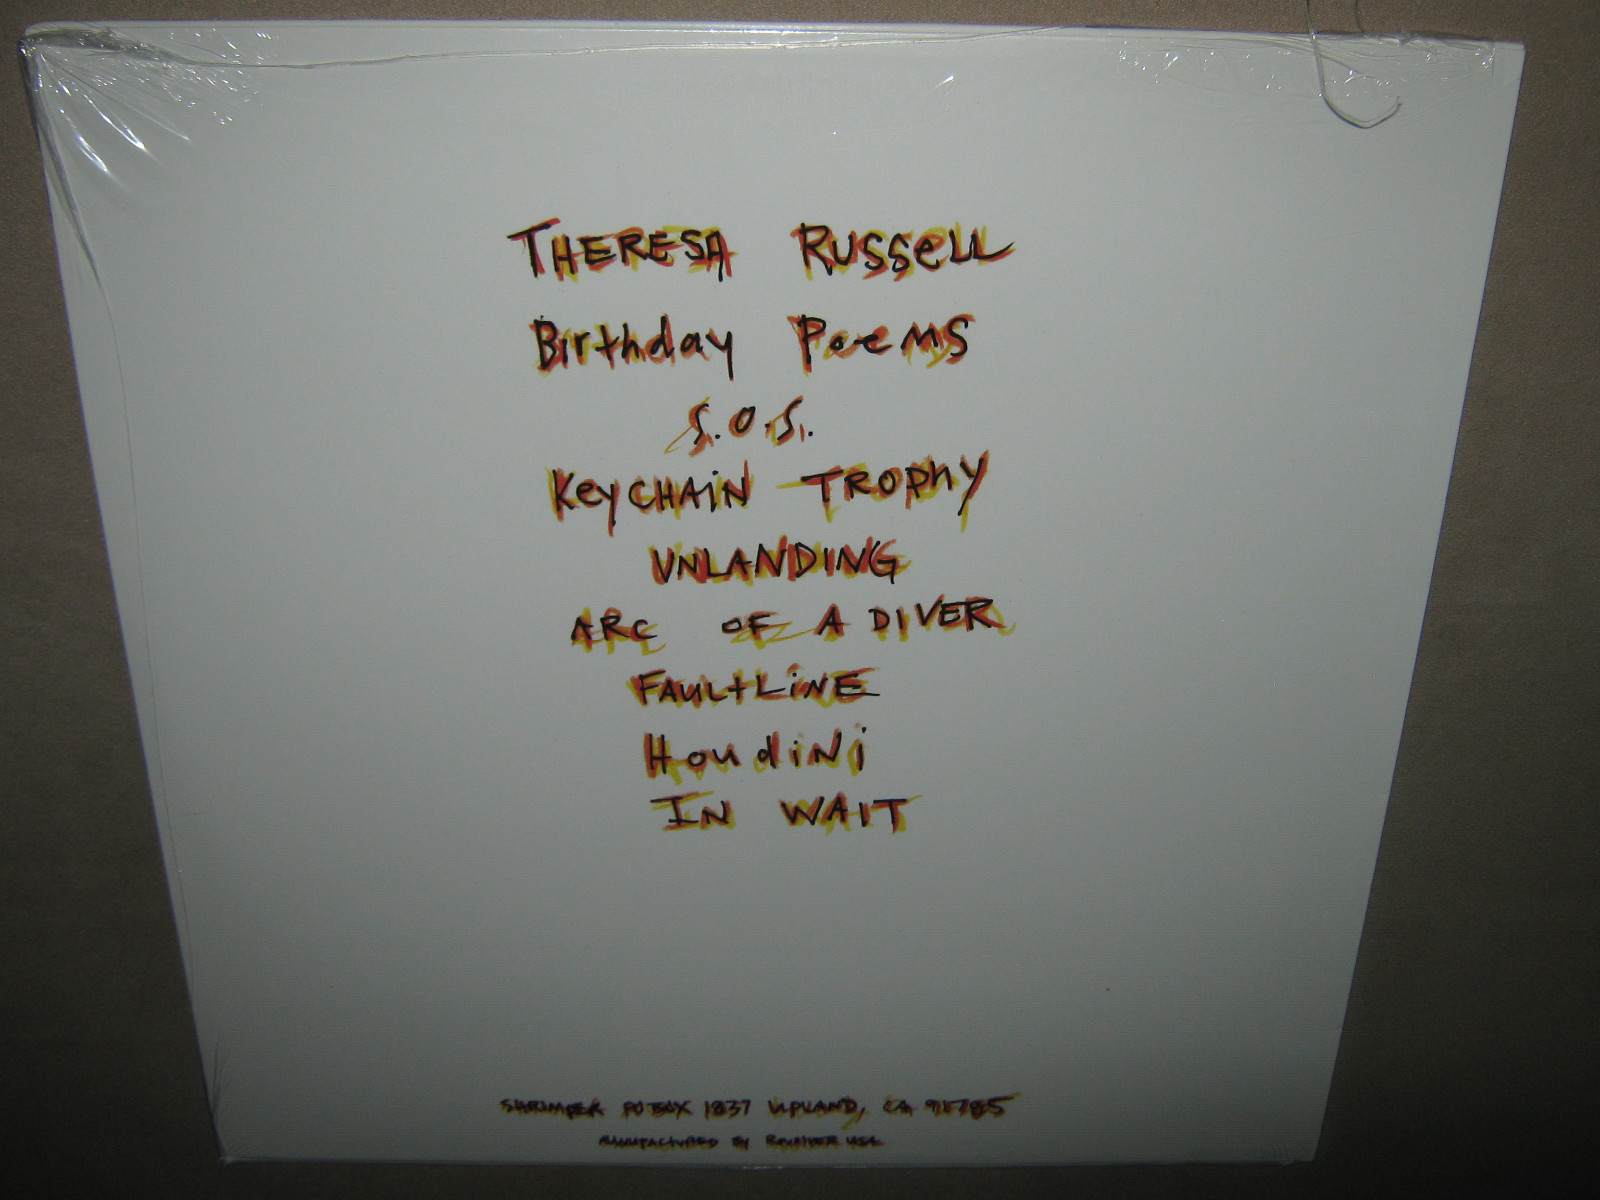 THERESA RUSSELL
Birthday Poems
S.O.S.
KeyCHAiN TROphy
UNLANDING
ARC OF A DIVER
FAULtLiNE
HoudiNi
IN WAIT
SHRIMPER PO BOX 1837 UPLAND, CA 91785
MANUFACTURED By REVOLVER USA